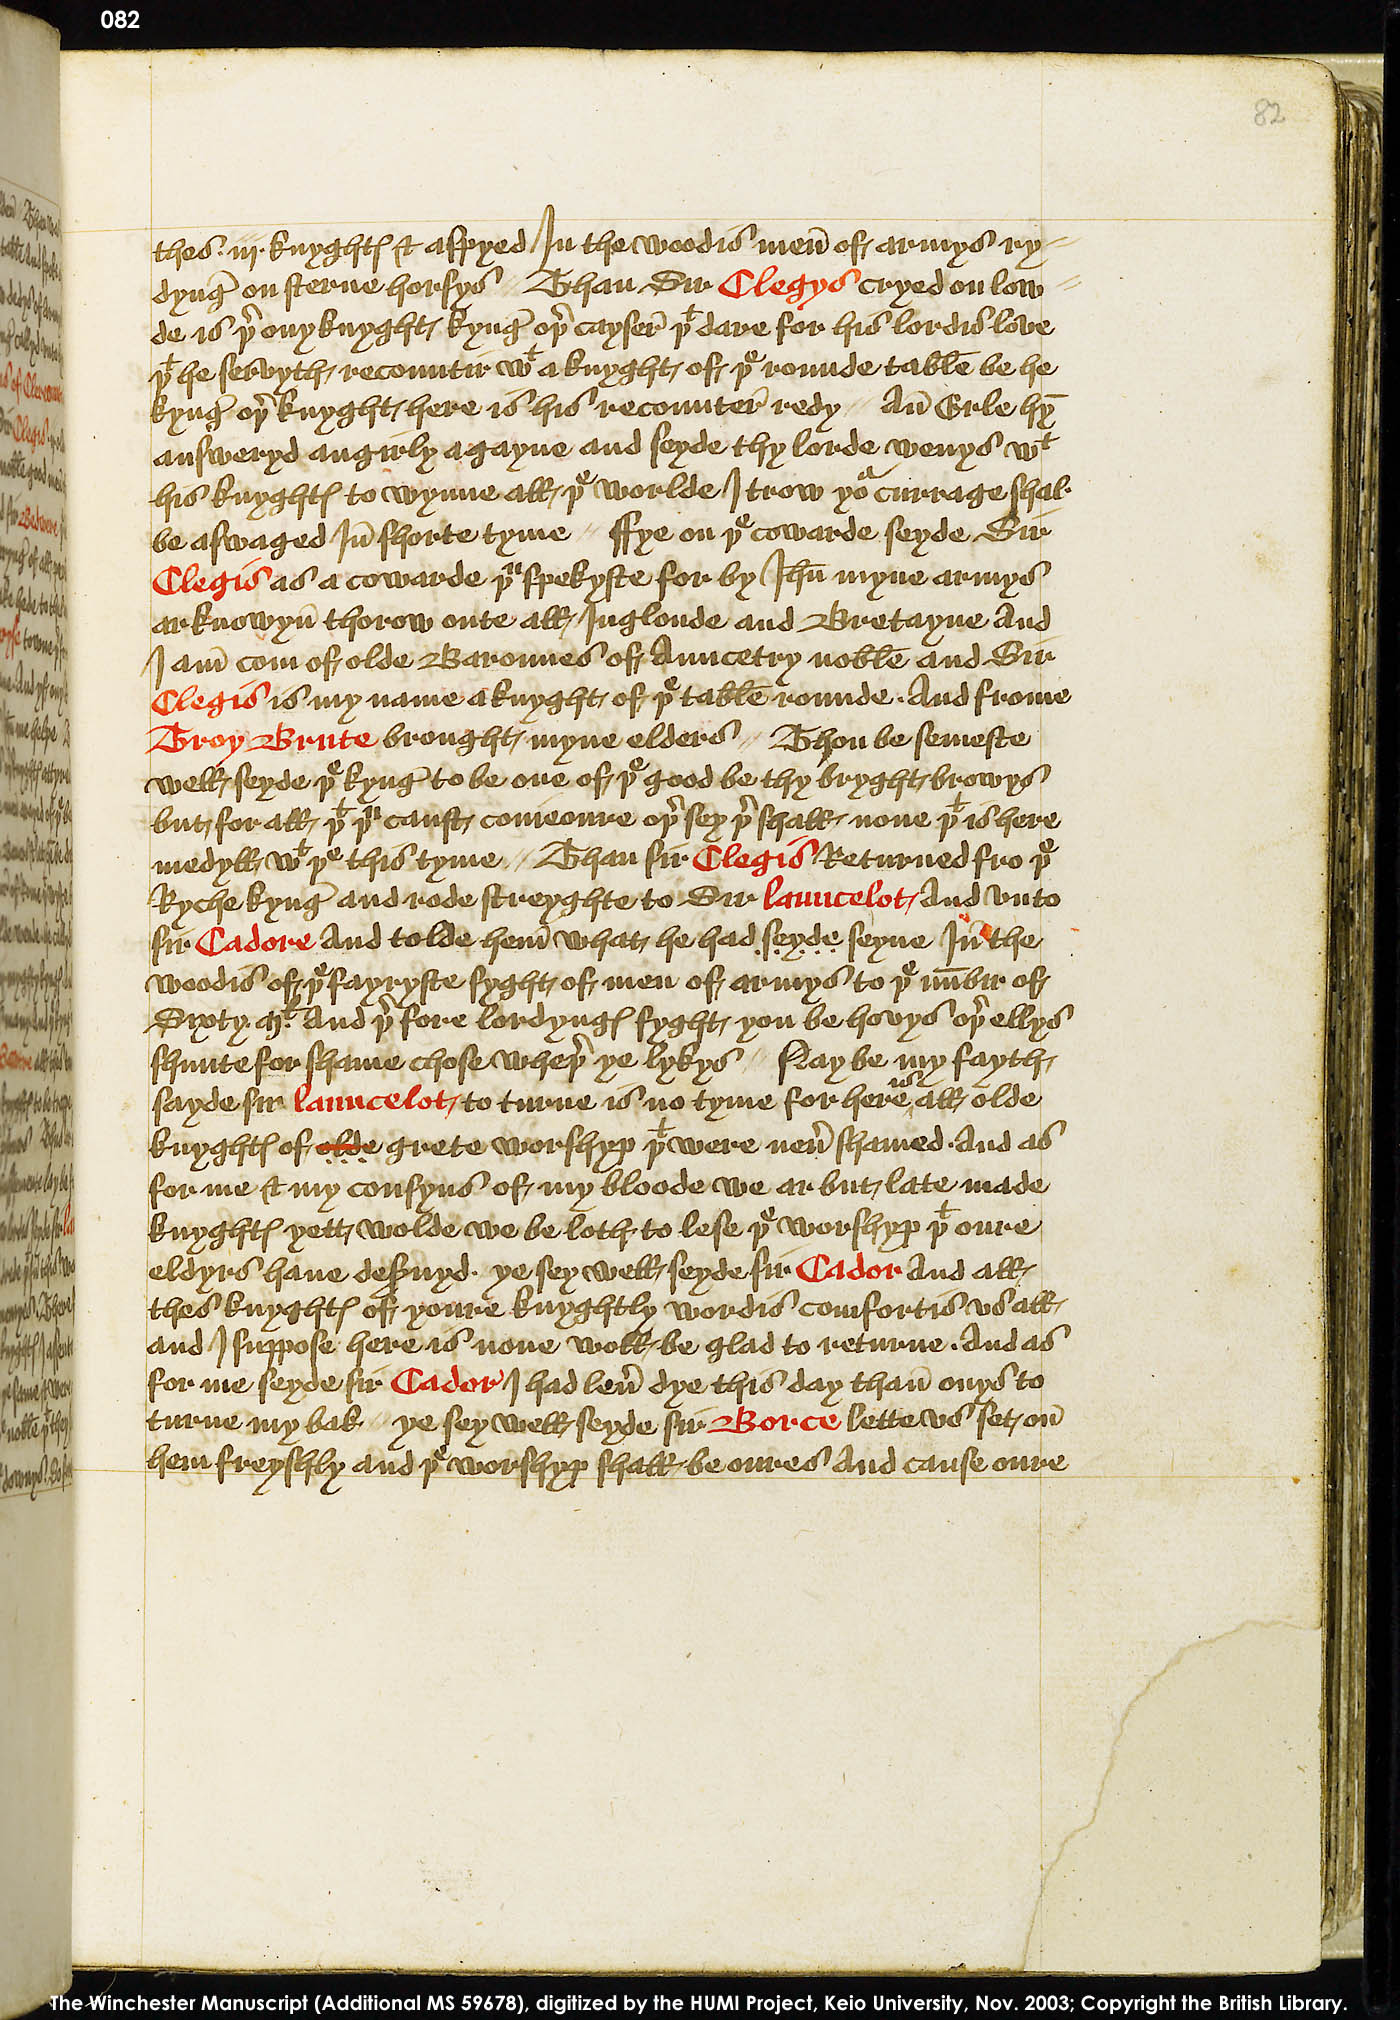 082
82
thes .iij. knyghtꝭ & aspyed In the woodis men̄ of armys ry//
dyng̃ on sterne horsys // Than Sir Clegys cryed on low//
de is þ͛ ony knyght kyng̃ oþ͛ cayser̃ þͭ dare for his lordis love
þͭ he servyth recountir wͭ a knyght of þͤ rounde table be he
kyng̃ oþ͛ knyght here is his recounter̃ redy // An̄ Erle hȳ
answeryd angirly agayne and seyde thy lorde wenys wͭ
his knyghtꝭ to wynne all þͤ worlde I trow yoᷣ currage shal
be aswaged In̄ shorte tyme // ffye on þͤ cowarde seyde Sir
Clegis as a cowarde þᵘ spekyste for by Ihū myne armys
ar knowyn̄ thorow oute all Inglonde and Bretayne And
I am̄ com of olde Barounes of Auncetry noble and Sir
Clegis is my name a knyght of þͤ table rounde . And frome
Troy Brute brought myne elders // Thou be semeste
well seyde þͤ kyng̃ to be one of þͤ good be thy bryght browys
but for all þͭ þᵘ canst conieoure oþ͛ sey þ͛ shall none þͭ is here
medyll wͭ þͤ this tyme // Than sir Clegis Returned fro þͤ
Ryche kyng̃ and rode streyghte to Sir launcelot And vnto
sir Cadore And tolde hem̄ what he had seyde seyne In̄ the
woodis of þͤ fayryste syght of men of armys to þͤ nūbir of
Sixty .Mˡ. And þ͛ fore lordyngꝭ fyght you be hovys oþ͛ ellys
shunte for shame chose wheþ͛ ye lykys // Nay be my fayth
sayde sir launcelot to turne is no tyme for here is all olde
knyghtꝭ of olde grete worshyp þͭ were neu͛ shamed . And as
for me & my cosyns of my bloode we ar but late made
knyghtꝭ yett wolde we be loth to lese þͤ worshyp þͭ oure
eldyrs haue deseruyd . ye sey well seyde sir Cador And all
thes knyghtꝭ of youre knyghtly wordis comfortis vs all
and I suppose here is none woll be glad to returne . And as
for me seyde sir Cador I had leu͛ dye this day than̄ onys to
turne my bak // ye sey well seyde sir Borce lette vs set on̄
hem freyshly and þͤ worshyp shall be oures And cause oure
The Winchester Manuscript (Additional MS 59678), digitized by the HUMI Project, Keio University, Nov. 2003; Copyright the British Library.